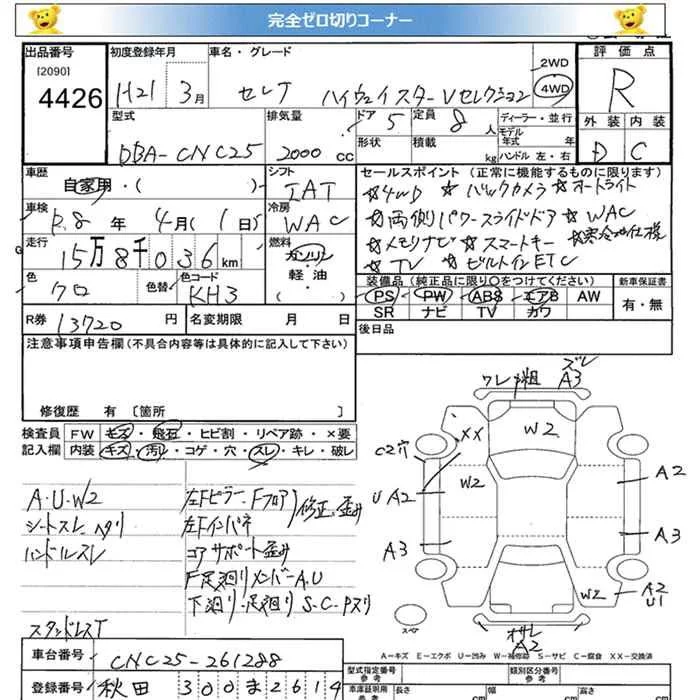 完全ゼロ切りコーナー
出品番号 初度登録年月 車名・グレード
[2090]
4426
H21 3月 セレナ ハイウェイスターVセレクション
2WD
4WD
評価点
R
外装 内装
D C
型式 排気量 ドア 5 定員 8人 ディーラー・並行
DBA-CNC25 2000cc
形状 積載 kg
モデル年式 年
ハンドル 左・右
車歴 自家用・( )
シフト IAT
車検 R.8年 4月(1日)
冷房 WAC
走行 15万8千036km
燃料 ガソリン 軽油 ( )
色 クロ 色替 色コード KH3
セールスポイント(正常に機能するものに限ります)
☆4WD ☆バックカメラ ☆オートライト
☆両側パワースライドドア ☆WAC
☆メモリナビ ☆スマートキー ☆寒冷地仕様
☆TV ☆ビルトインETC
装備品(純正品に限り○をつけてください) 新車保証書
PS PW ABS エアB AW 有・無
SR ナビ TV カワ
R券 13720円 名変期限 月 日
後日品
注意事項申告欄(不具合内容等は具体的に記入して下さい)
修復歴 有 [箇所 ]
検査員 FW キズ・飛石・ヒビ割・リペア跡・×要
記入欄 内装 キズ・汚レ・コゲ・穴・スレ・キレ・破レ
A.U.W2
シートスレ、ヘタリ
ハンドルスレ
スタッドレスT
左Fピラー、Fフロア
左Fインパネ
修正、歪み
コアサポート歪み
F足廻りメンバーA.U
下廻り・足廻りS.C.Pズリ
ワレ
ズレ
A3
W2
XX
C2穴
W2
U A2
A2
A3
A3
W2
A2
U1
A2
スペア
A-キズ E-エクボ U-凹み W-補修跡 S-サビ C-腐食 XX-交換済
車台番号 CNC25-261288
登録番号 秋田 300ま2614
型式指定番号 参考 類別区分番号 参考
車庫証明用 参考 長さ cm 幅 cm 高さ cm